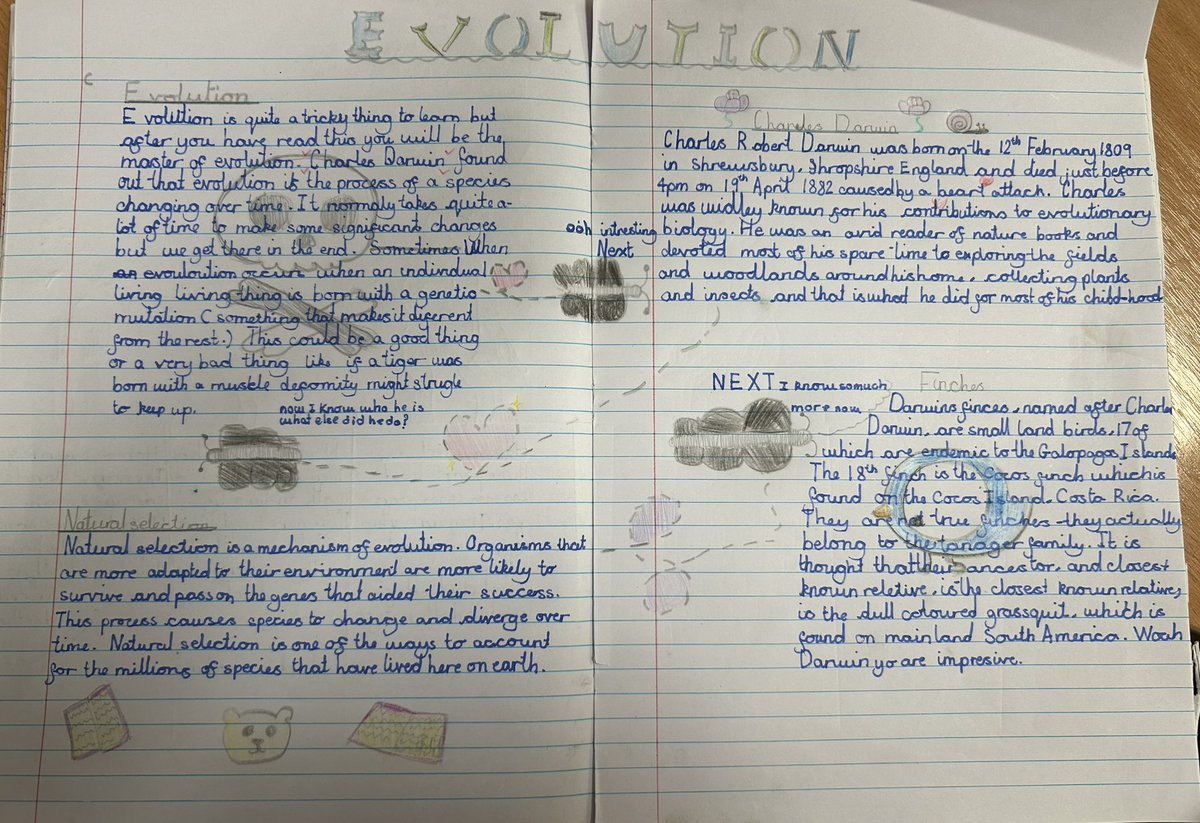 EVOLUTION
Evolution
Evolution is quite a tricky thing to learn but
after you have read this you will be the
master of evolution. Charles Darwin found
out that evolution is the process of a species
changing over time. It normaly takes quite a-
lot of time to make some significant changes
but we get there in the end. Sometimes When
evouloution occurs when an individual
living living thing is born with a genetic
mutation (something that makes it diferent
from the rest.) This could be a good thing
or a very bad thing like if a tiger was
born with a muskle deformity might strugle
to keep up.
now I know who he is
what else did he do?
Natural selection
Natural selection is a mechanism of evolution. Organisms that
are more adapted to their environment are more likely to
survive and pass on the genes that aided their success.
This process causes species to change and diverge over
time. Natural selection is one of the ways to account
for the millions of species that have lived here on earth.
Charles Darwin
Charles Robert Darwin was born on the 12th February 1809
in Shrewsbury, Shropshire England and died just before
4pm on 19th April 1882 caused by a heart attack. Charles
was widley known for his contributions to evolutionary
biology. He was an avid reader of nature books and
devoted most of his spare time to exploring the fields
and woodlands around his home, collecting plants
and insects and that is what he did for most of his child-hood
ooh intresting
Next
NEXT I know so much
more now
Finches
Darwins finces, named after Charles
Darwin, are small land birds, 17 of
which are endemic to the Galopagos Islands
The 18th finch is the Cocos finch which is
found on the Cocos Island, Costa Rica.
They are not true finches - they actually
belong to the tanager family. It is
thought that their ancestor, and closest
known reletive, is the closest known relative,
is the dull coloured grassquit, which is
found on mainland South America. Woah
Darwin yo are impresive.